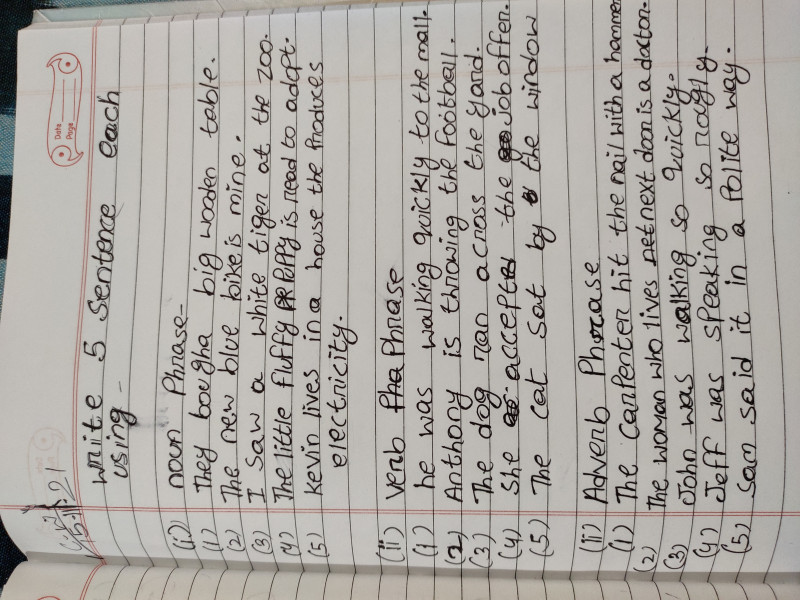 Date
Page
write 5 sentence each
using -
(i) noun Phrase-
(1) They bougha big wooden table.
(2) The new blue bike is mine.
(3) I saw a white tiger at the zoo.
(4) The little fluffy Puffy is read to adopt.
(5) Kevin lives in a house the Produces
electricity.
(ii) verb Phrase
(1) he was walking quickly to the mall.
(2) Anthony is throwing the football.
(3) The dog ran across the yard.
(4) She accept the job offer.
(5) The cat sat by the window
(ii) Adverb Phrase
(1) The carpenter hit the nail with a hammer
(2) The woman who lives next door is a doctor.
(3) John was walking so quickly.
(4) Jeff was speaking so
(5) Sam said it in a Polite way.